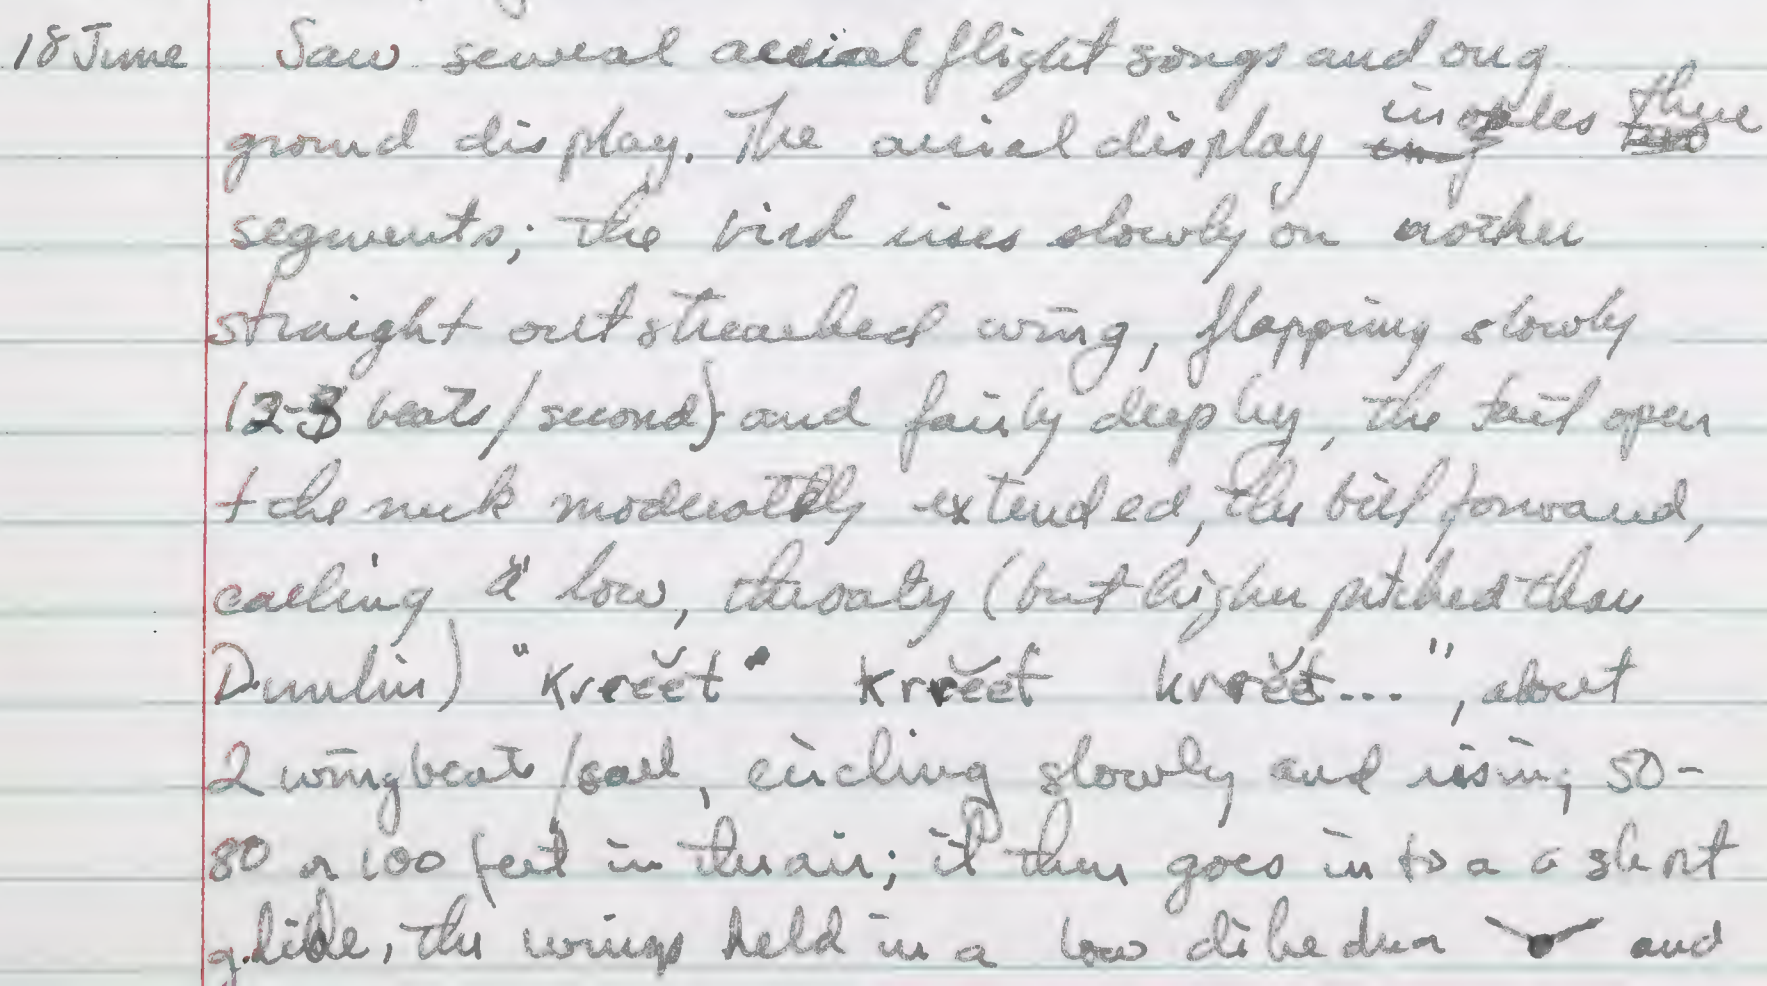 18 June Saw several aerial flight songs and one
ground display. The aerial display involes three
segments; the bird rises slowly on rather
straight outstreached wing, flapping slowly
(2-3 beats/second) and fairly deeply, the tail open
+ the neck moderately extended, the bill forward,
calling a low, throaty (but higher pitched than
Dunlin) "krrčet krrčet krrčet...", about
2 wingbeats/call, circling slowly and rising 50-
80 or 100 feet in the air; it then goes into a a short
glide, the wings held in a low dihedral and